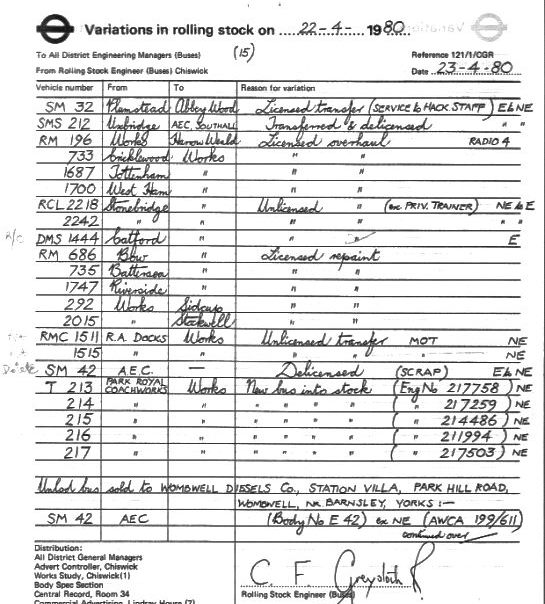 Variations in rolling stock on 22-4-1980
To All District Engineering Managers (Buses) (15) Reference 121/1/CGR
From Rolling Stock Engineer (Buses) Chiswick Date 23-4-80
Vehicle number From To Reason for variation
SM 32 Plumstead Abbey Wood Licensed transfer (SERVICE to HACK STAFF) E to NE
SMS 212 Uxbridge AEC, SOUTHALL Transferred & delicensed " "
RM 196 Works Harrow Weald Licensed overhaul RADIO 4
733 Cricklewood Works " "
1687 Tottenham " " "
1700 West Ham " " "
RCL 2218 Stonebridge " Unlicensed " (ex PRIV. TRAINER) NE to E
2242 " " " " " "
R/C DMS 1444 Catford " " " E
RM 686 Bow " Licensed repaint
735 Battersea " " "
1747 Riverside " " "
292 Works Sidcup " "
2015 " Stockwell " "
RMC 1511 R.A. DOCKS Works Unlicensed transfer MOT NE
1515 " " " " " NE
Delete SM 42 A.E.C. — Delicensed (SCRAP) E to NE
T 213 PARK ROYAL COACHWORKS Works New bus into stock (Eng No 217758) NE
214 " " " " " " ( " 217259) NE
215 " " " " " " ( " 214486) NE
216 " " " " " " ( " 211994) NE
217 " " " " " " ( " 217503) NE
Unlcd bus sold to WOMBWELL DIESELS Co., STATION VILLA, PARK HILL ROAD,
WOMBWELL, NR. BARNSLEY, YORKS :—
SM 42 AEC (Body No E 42) ex NE (AWCA 199/611)
continued over
Distribution:
All District General Managers
Advert Controller, Chiswick
Works Study, Chiswick (1)
Body Spec Section
Central Record, Room 34
Commercial Advertising, Lindsay House (7)
C. F.
Rolling Stock Engineer (Buses)